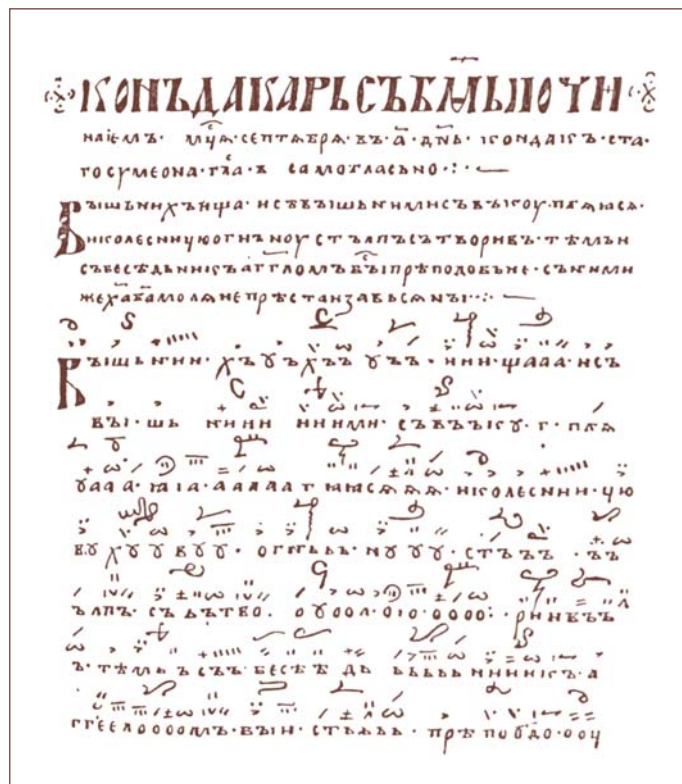 КОНЪДАКАРЬСЪБ҃МЬПОЧИ
наѥмъ· мц҃ѧ· септѧбрѧ· въ· а҃· дн҃ь· кондакъ· ста·
госумеона· гл҃а· в самогласьно·:·
Въішьнихъища· исъвъішьнимисъвъкоу·плѧꙗсѧ·
иколесницюогньноу стълпъсътворивъ·тѣмьи
събесѣдьникъаг҃гломъбъі҃прѣподобьне·съними
жех҃аб҃амолѧнепрѣстаизавьсѧнъі·:·
Въішьнии· хъꙋъхъъ ꙋъъ· иии·щааа·исъ
въі·шь нии ииими· съвъъкꙋ·г·плѧ
ꙋааа·ꙗіа·ааааагꙗюсѧѧѧ·иколесници·цю
вꙋ хꙋꙋвꙋꙋ· огньььь·нꙋꙋꙋ·стъъъ· ъъ
ълпъ· съвътво. оꙋоол·оіо·оооо: ривъъ
ъ·тѣмь ъсъъ·бесѣѣдь ььььнииикъ·а
ггеелооомъ·бъіи·стььь·прѣподо·ооу